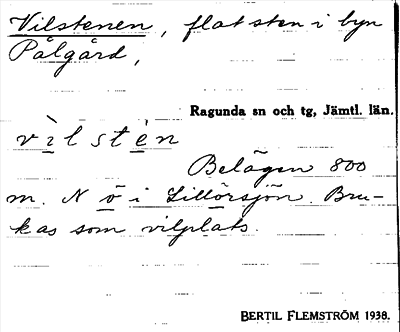 Vilstenen, flat sten i byn
Pålgård,
Ragunda sn och tg, Jämtl. län.
vìlstèn
Belägen 800
m. N ö i Lillörsjön. Bru-
kas som vilplats.
BERTIL FLEMSTRÖM 1938.